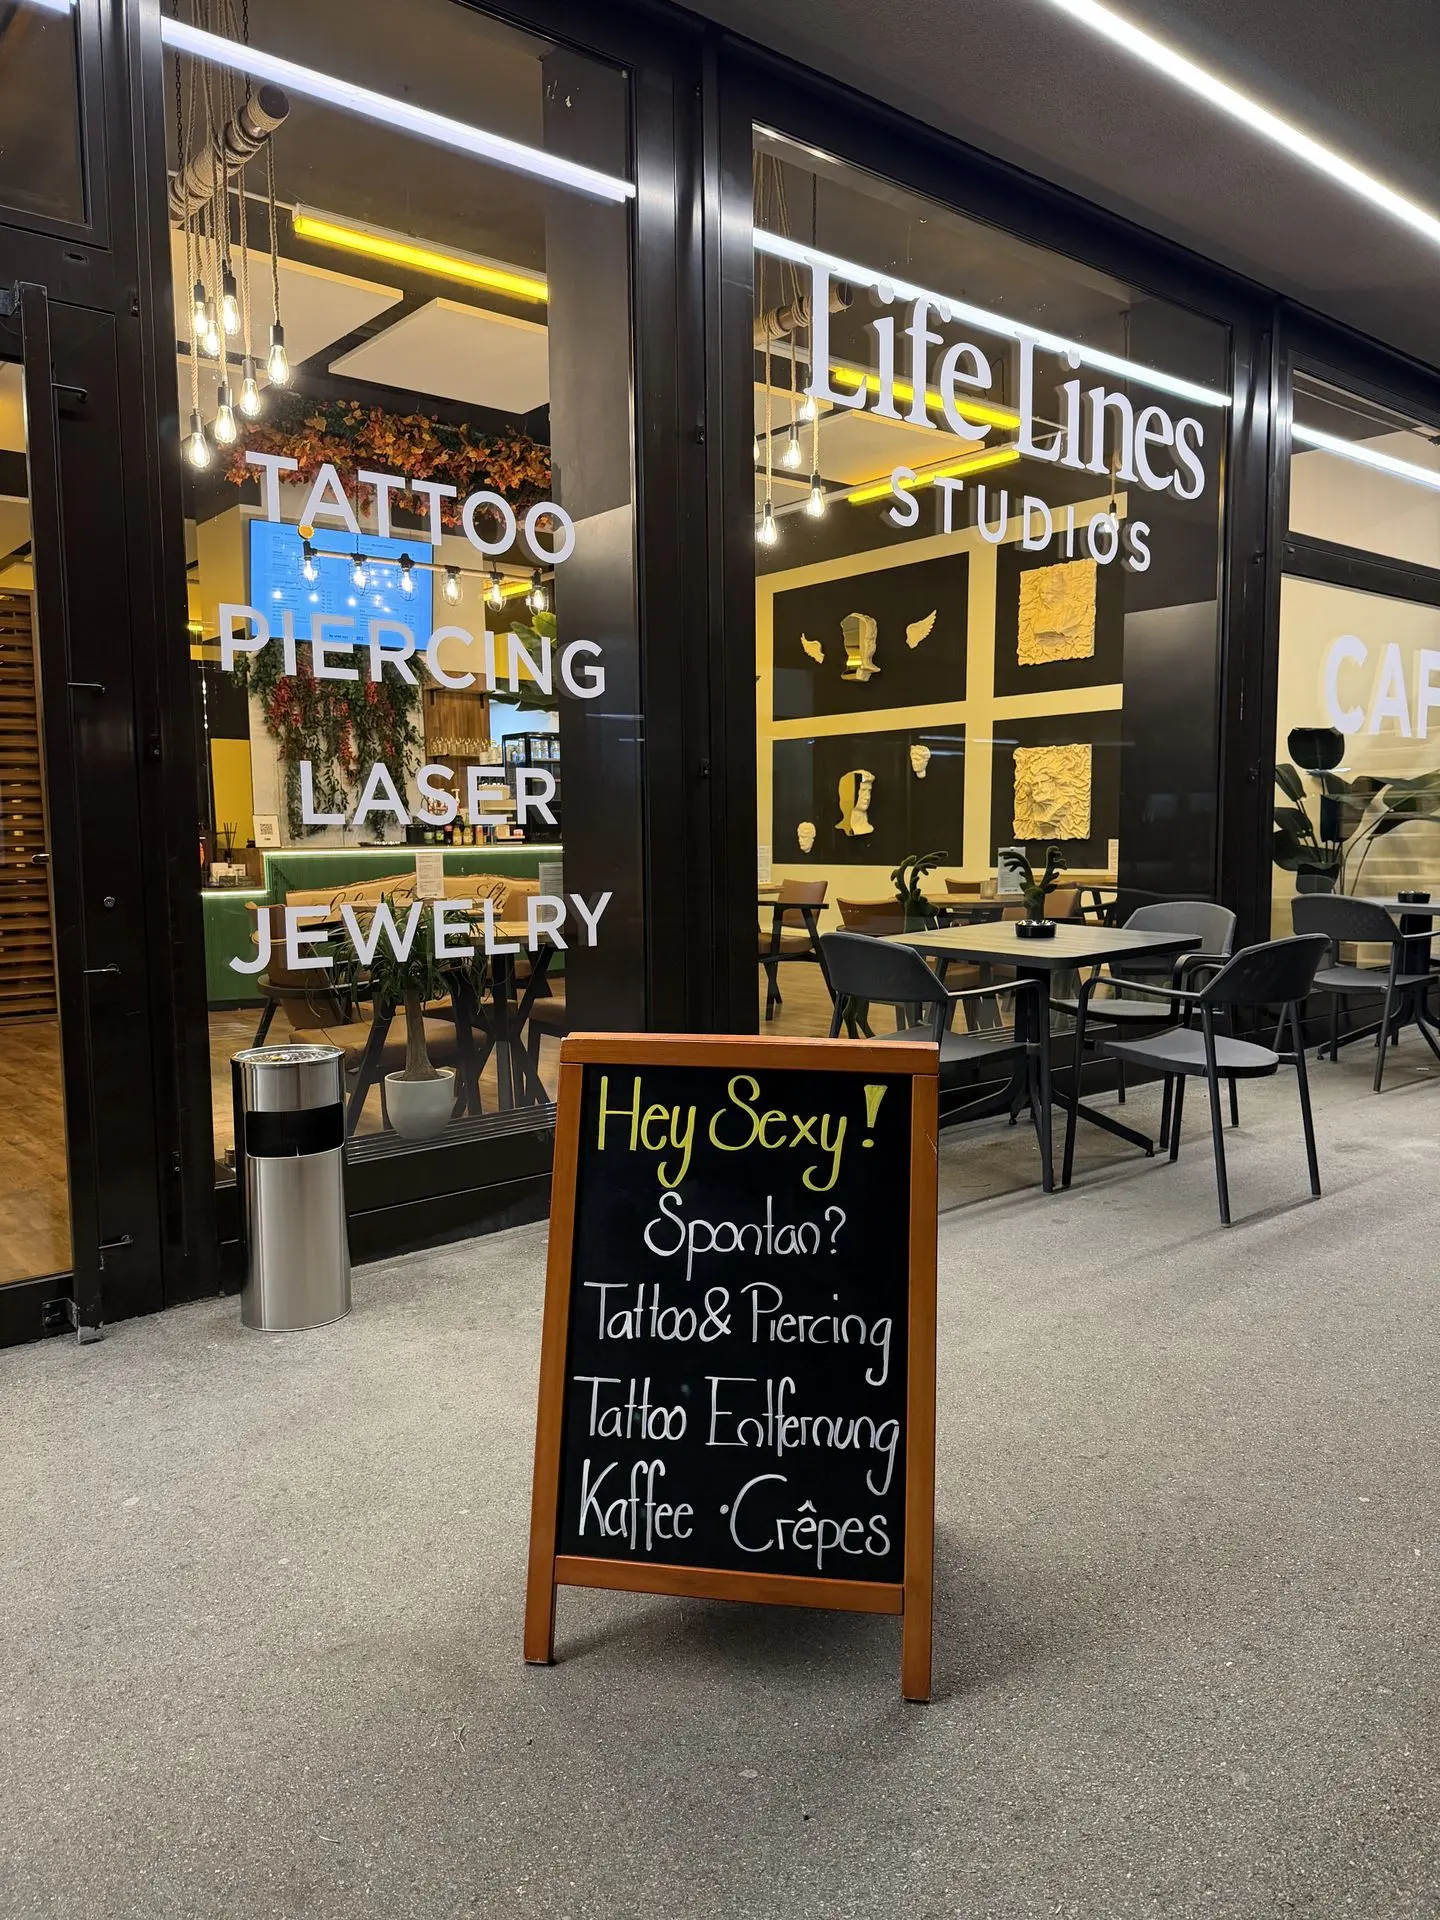 TATTOO
PIERCING
LASER
JEWELRY
Life Lines
STUDIOS
Hey Sexy!
Spontan?
Tattoo & Piercing
Tattoo Entfernung
Kaffee · Crêpes